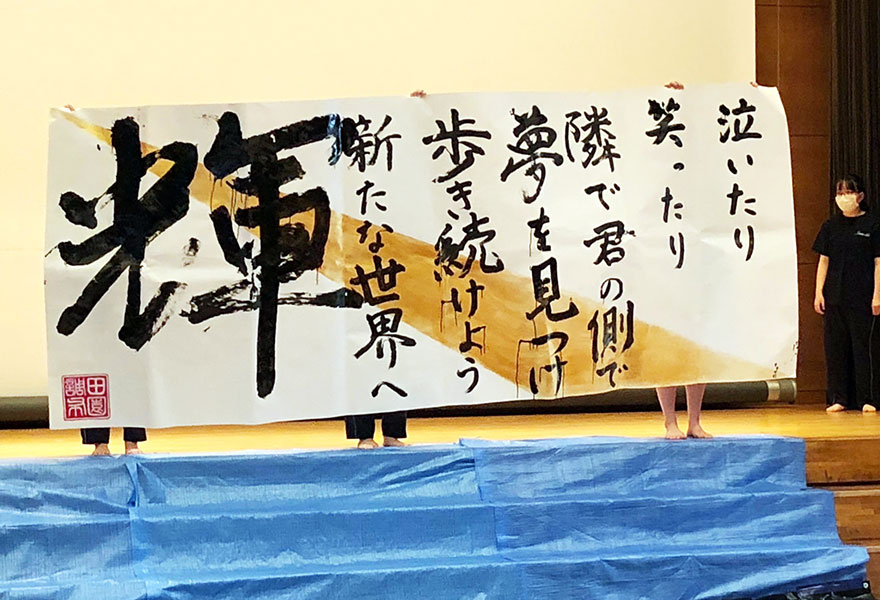 泣いたり
笑ったり
隣で君の側で
夢を見つけ
歩き続けよう
新たな世界へ
輝
田園